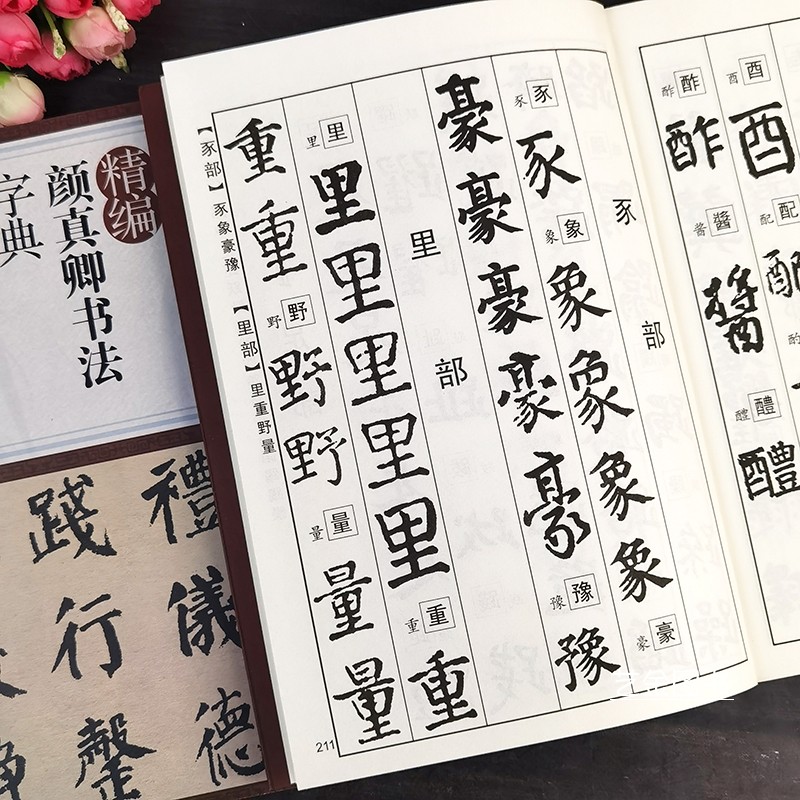 精编
颜真卿书法
字典
禮儀德
踐行馨
豕部
豕 豕 豕 象 象 象 象 象 象 豪 豪
豪 豪 豪 豪 豪 豫 豫 豫
里部
里 里 里 里 里 里 里 重 重 重
重 重 野 野 野 野 量 量 量 量
【豕部】豕象豪豫 【里部】里重野量
211
酉 酉 酉 配 配 配 酌
酢 酢 酢 酱 醬 醬 醴 醴 醴